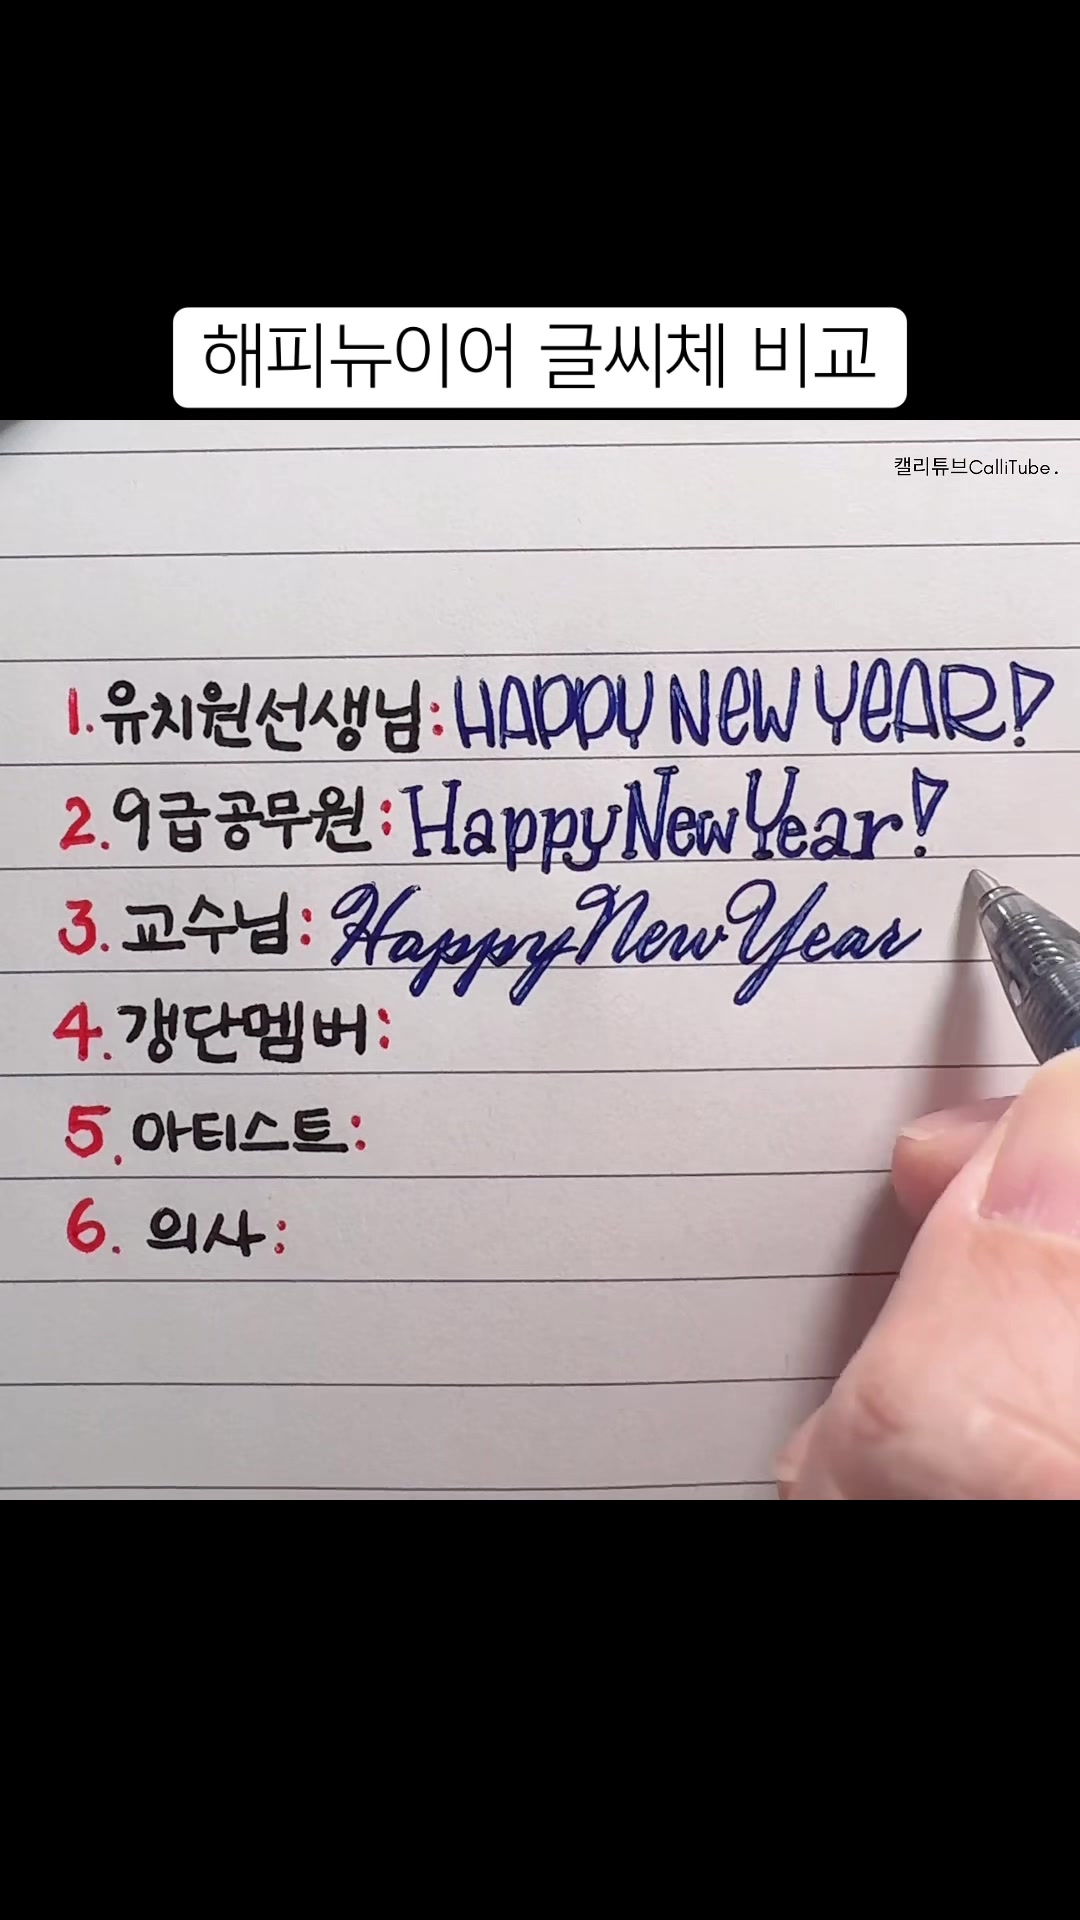 해피뉴이어 글씨체 비교
캘리튜브CalliTube.
1. 유치원선생님: HAPPY NeW YeAR!
2. 9급공무원: Happy New Year!
3. 교수님: Happy New Year
4. 갱단멤버:
5. 아티스트:
6. 의사: